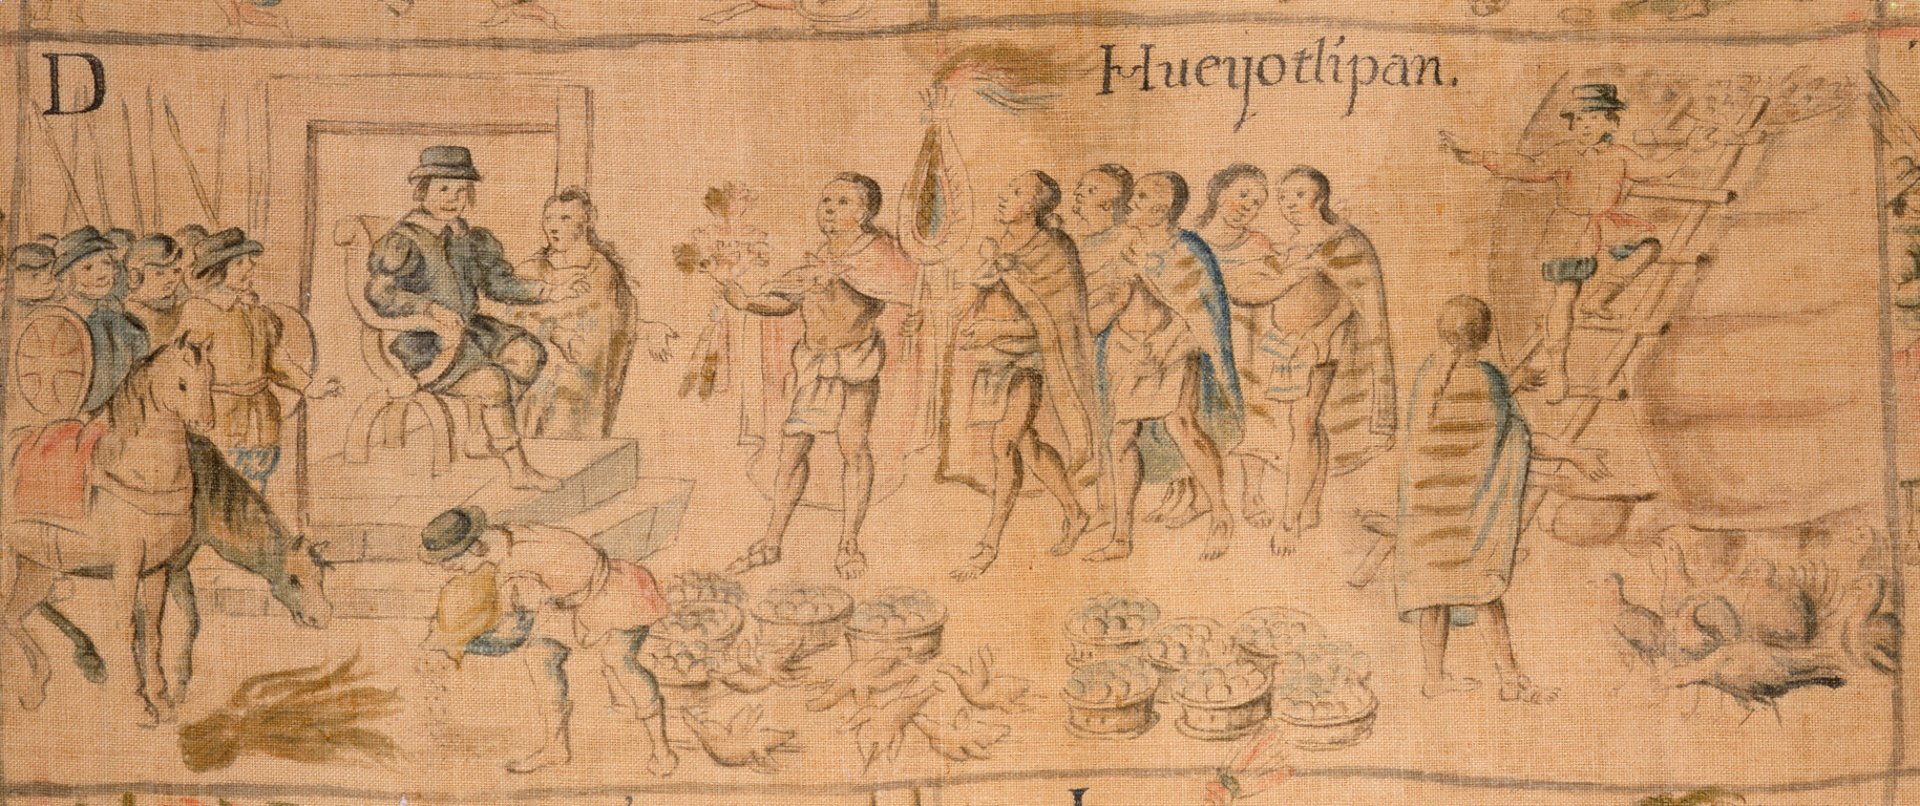 D
Hueyotlipan.